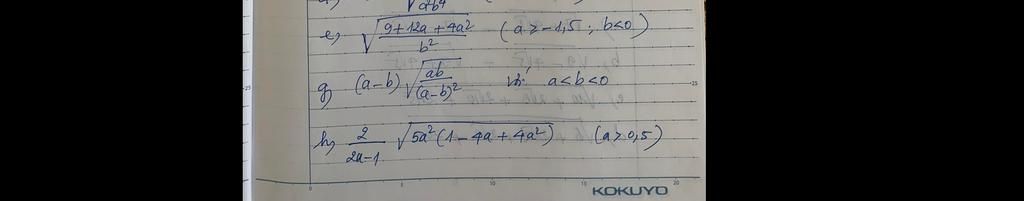 √ab⁴
e, √((9 + 12a + 4a²)/b²) (a ≥ -1,5 ; b<0)
g, (a-b) √(ab/(a-b)²) với a<b<0
h, 2/(2a-1) √(5a²(1 - 4a + 4a²)) (a>0,5)
0 5 10 15 20
KOKUYO